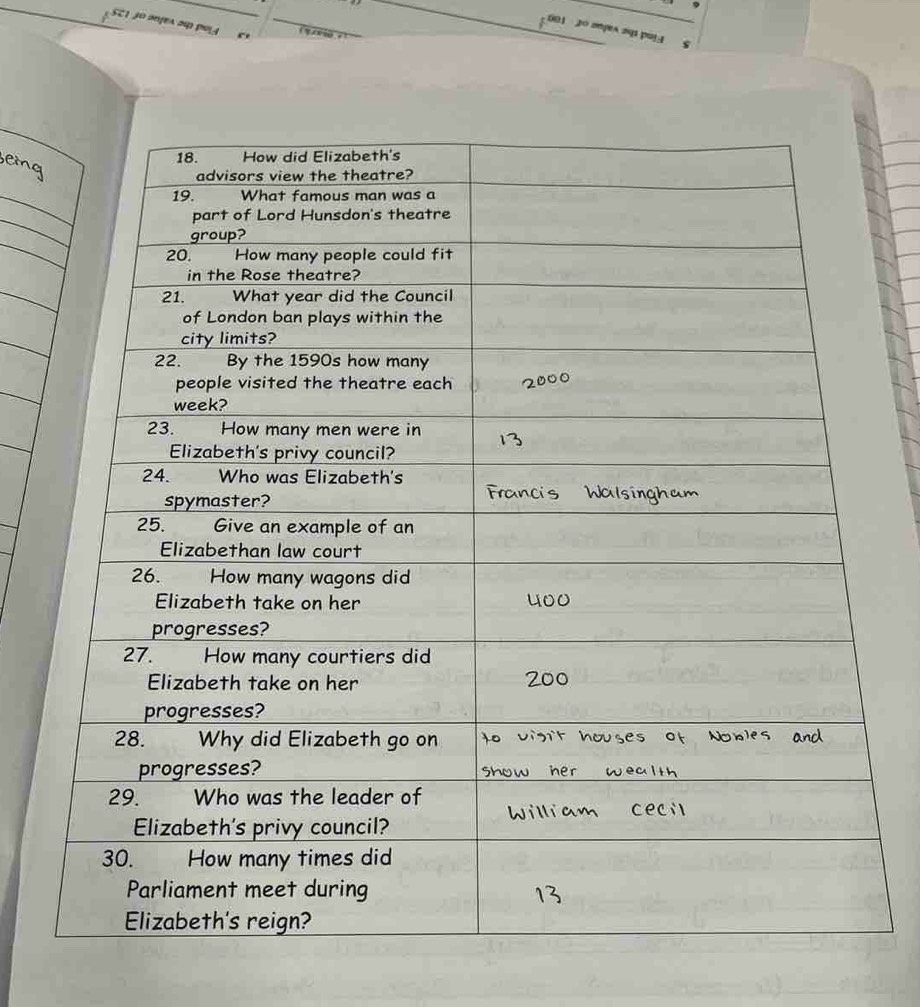 5 Find the value of 100
Find the value of 125
being
18. How did Elizabeth's
advisors view the theatre?
19. What famous man was a
part of Lord Hunsdon's theatre
group?
20. How many people could fit
in the Rose theatre?
21. What year did the Council
of London ban plays within the
city limits?
22. By the 1590s how many
people visited the theatre each
week?
2000
23. How many men were in
Elizabeth's privy council?
13
24. Who was Elizabeth's
spymaster?
Francis Walsingham
25. Give an example of an
Elizabethan law court
26. How many wagons did
Elizabeth take on her
progresses?
400
27. How many courtiers did
Elizabeth take on her
progresses?
200
28. Why did Elizabeth go on
progresses?
to visit houses of Nobles and
show her wealth
29. Who was the leader of
Elizabeth's privy council?
William Cecil
30. How many times did
Parliament meet during
Elizabeth's reign?
13